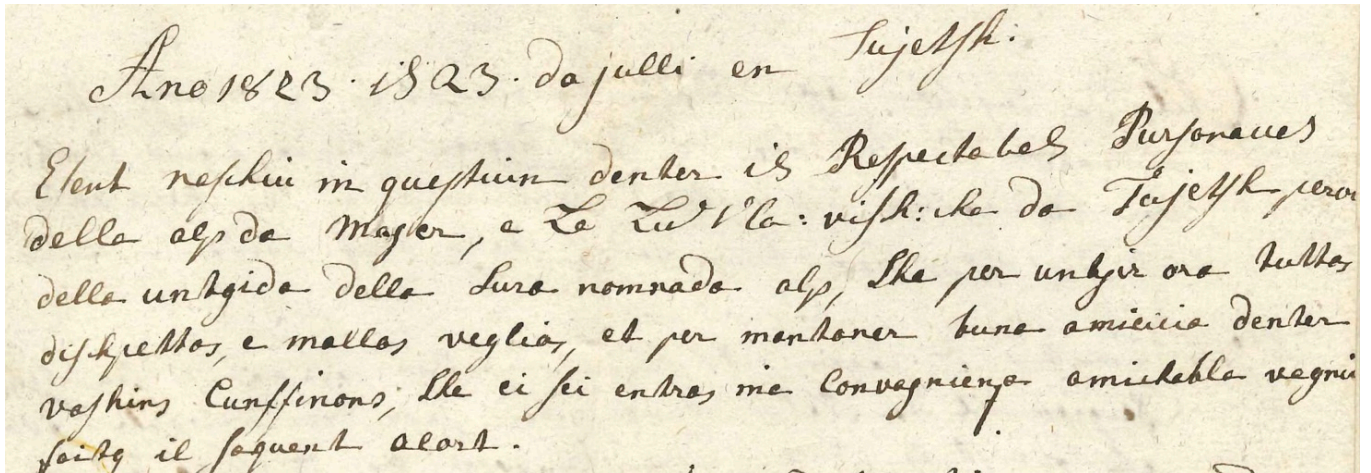 Ano 1823. is 23. da julli en Tujetsh.
Esent neschiu in questiun denter ils Respectabels Pursonaues
della alp da Mager, e La : vish:cha da Tujetsh
della untgida della sura nomnada alp, She per untgir ora tuttas
dischpettas, e mallas veglias, et per mantaner buna amicicia denter
vashins Cunffinons, She ei sei entras ina Convegnienza amichabla vegniu
faitg il sequent acort.